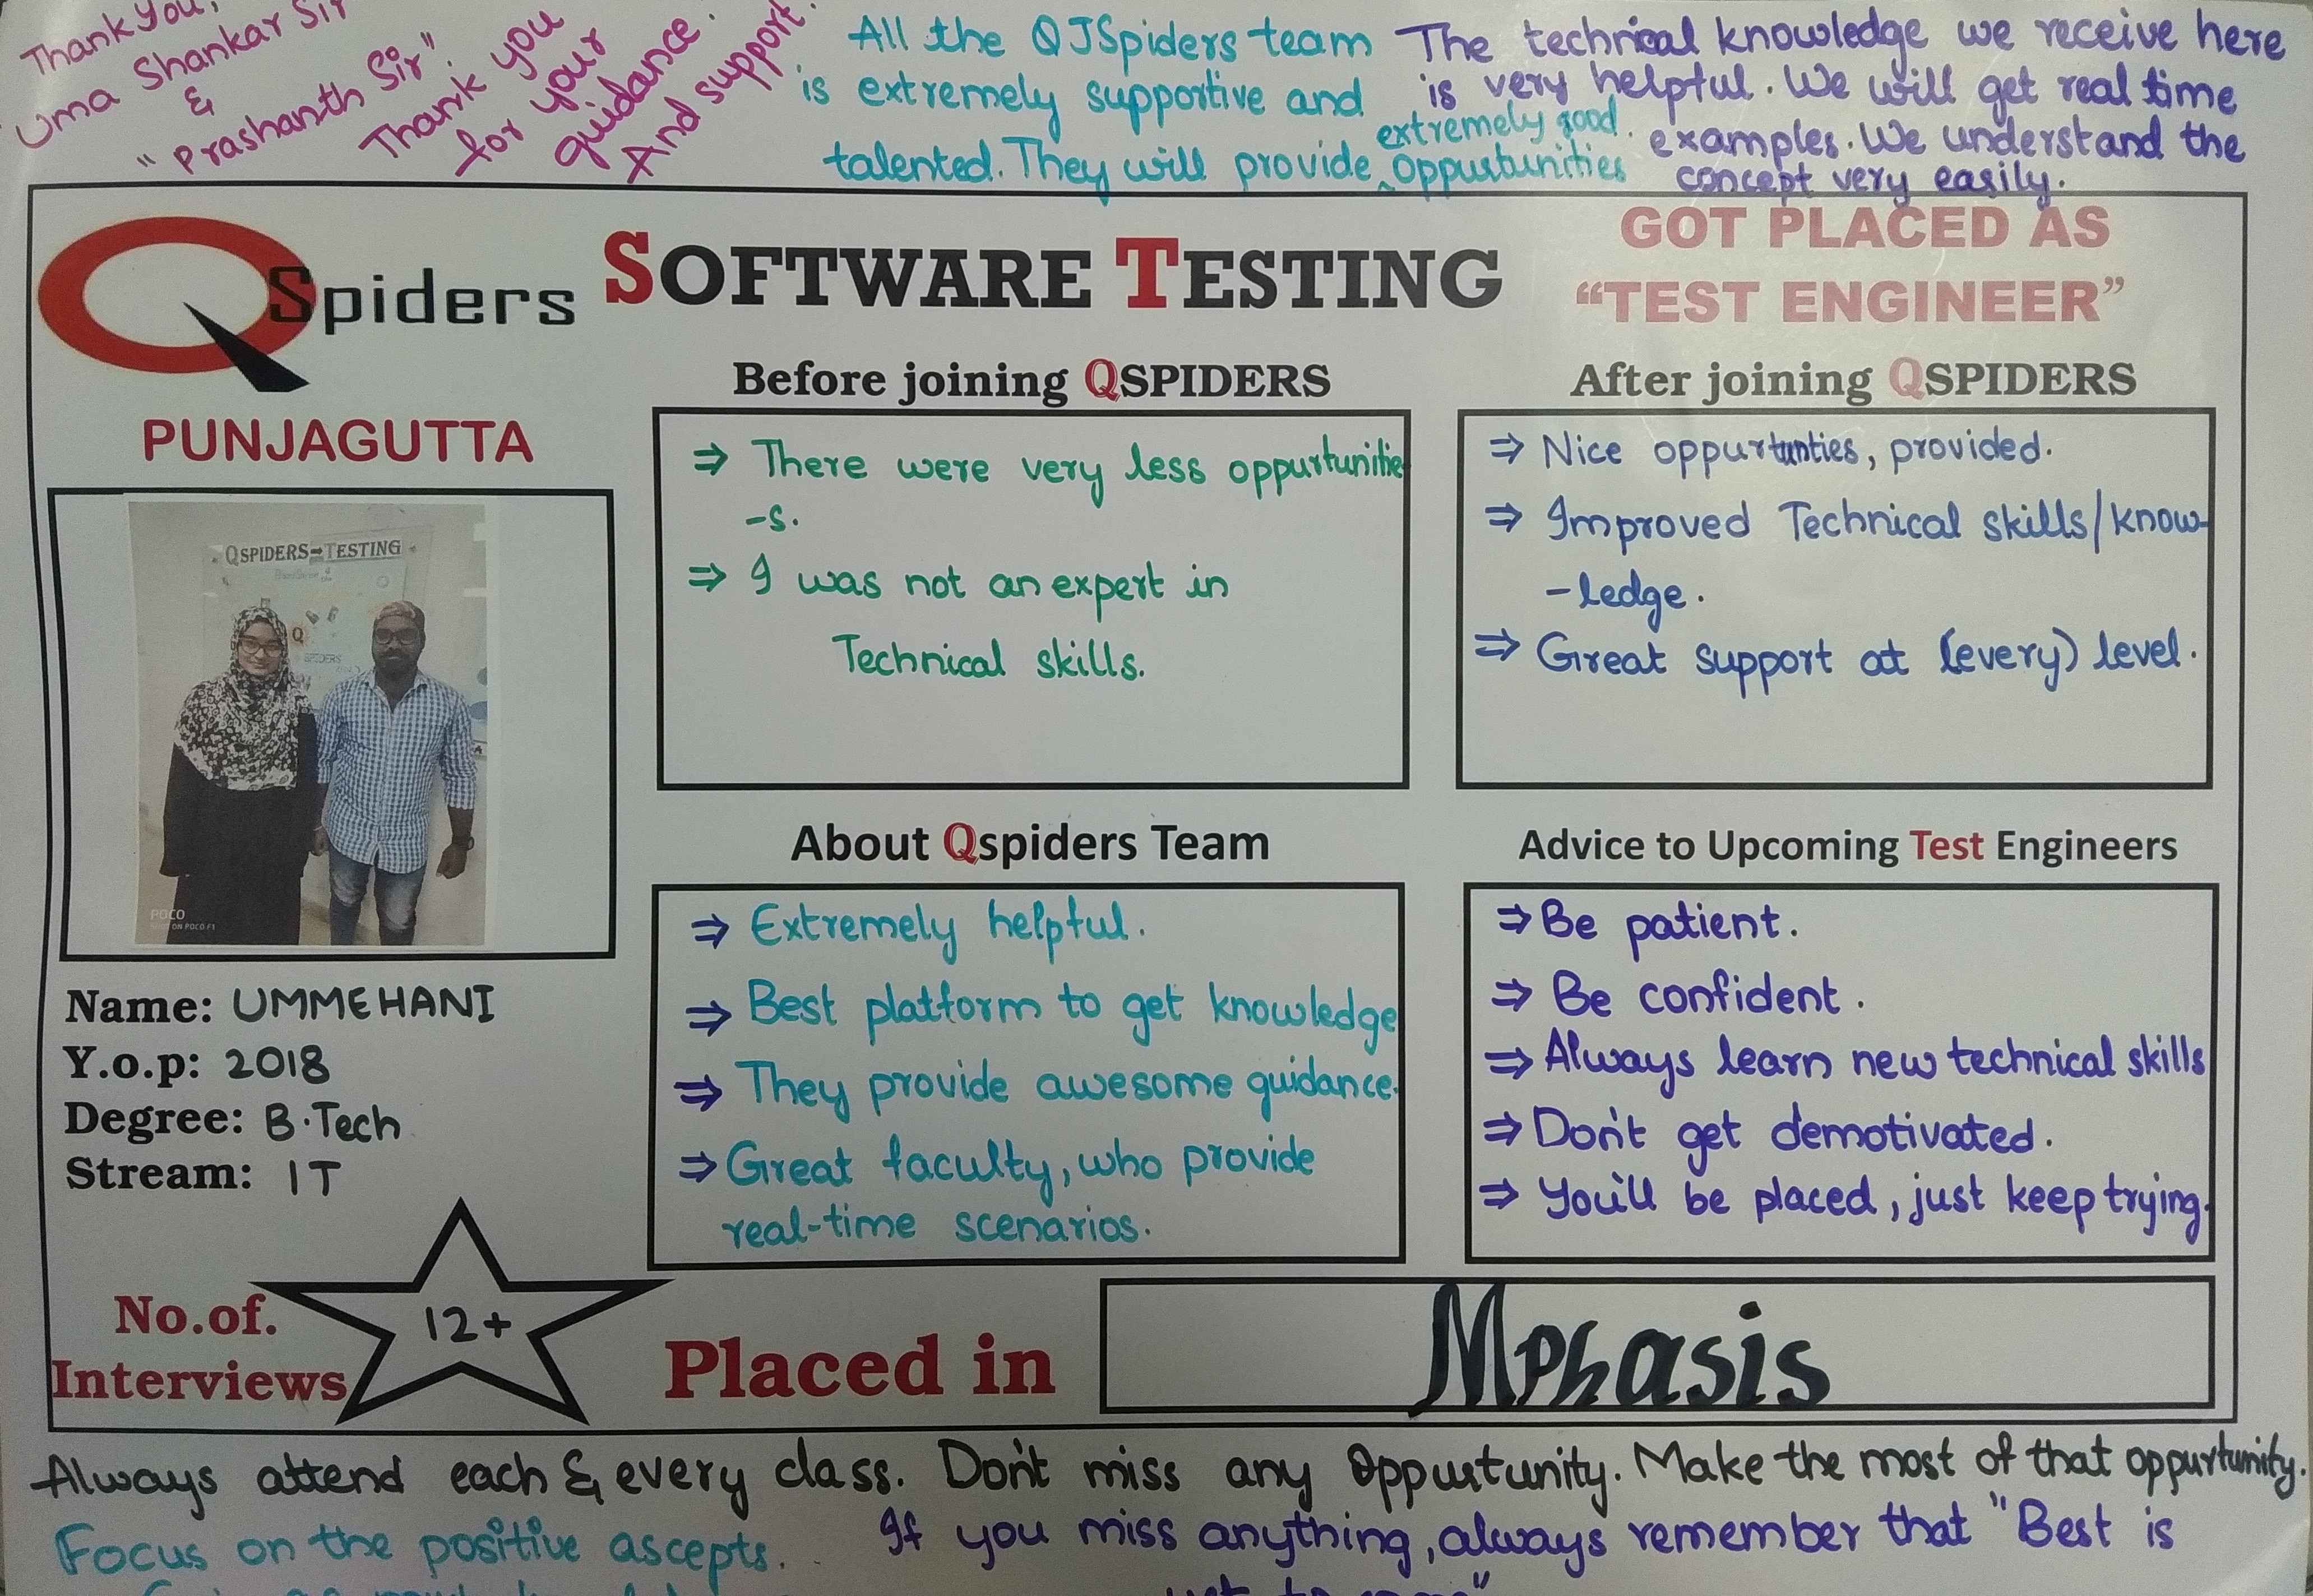 Thank you,
Uma Shankar Sir
&
"Prashanth Sir".
Thank you
for your
guidance.
And support.
All the QJSpiders team
is extremely supportive and
extremely good.
talented. They will provide oppurtunities
The technical knowledge we receive here
is very helpful. We will get real time
examples. We understand the
concept very easily.
QSpiders
SOFTWARE TESTING
GOT PLACED AS
“TEST ENGINEER”
PUNJAGUTTA
QSPIDERS TESTING
Q
SPIDERS
POCO
ON POCO F1
Name: UMMEHANI
Y.o.p: 2018
Degree: B.Tech
Stream: IT
Before joining QSPIDERS
⇒ There were very less oppurtunitie
-s.
⇒ I was not an expert in
Technical skills.
After joining QSPIDERS
⇒ Nice oppurtunties, provided.
⇒ Improved Technical skills/know-
-ledge.
⇒ Great support at (every) level.
About Qspiders Team
⇒ Extremely helpful.
⇒ Best platform to get knowledge
⇒ They provide awesome guidance.
⇒ Great faculty, who provide
real-time scenarios.
Advice to Upcoming Test Engineers
⇒ Be patient.
⇒ Be confident.
⇒ Always learn new technical skills
⇒ Don't get demotivated.
⇒ You'll be placed, just keep trying.
No.of.
Interviews
12+
Placed in Mphasis
Always attend each & every class. Don't miss any oppurtunity. Make the most of that oppurtunity.
Focus on the positive ascepts.
If you miss anything, always remember that "Best is